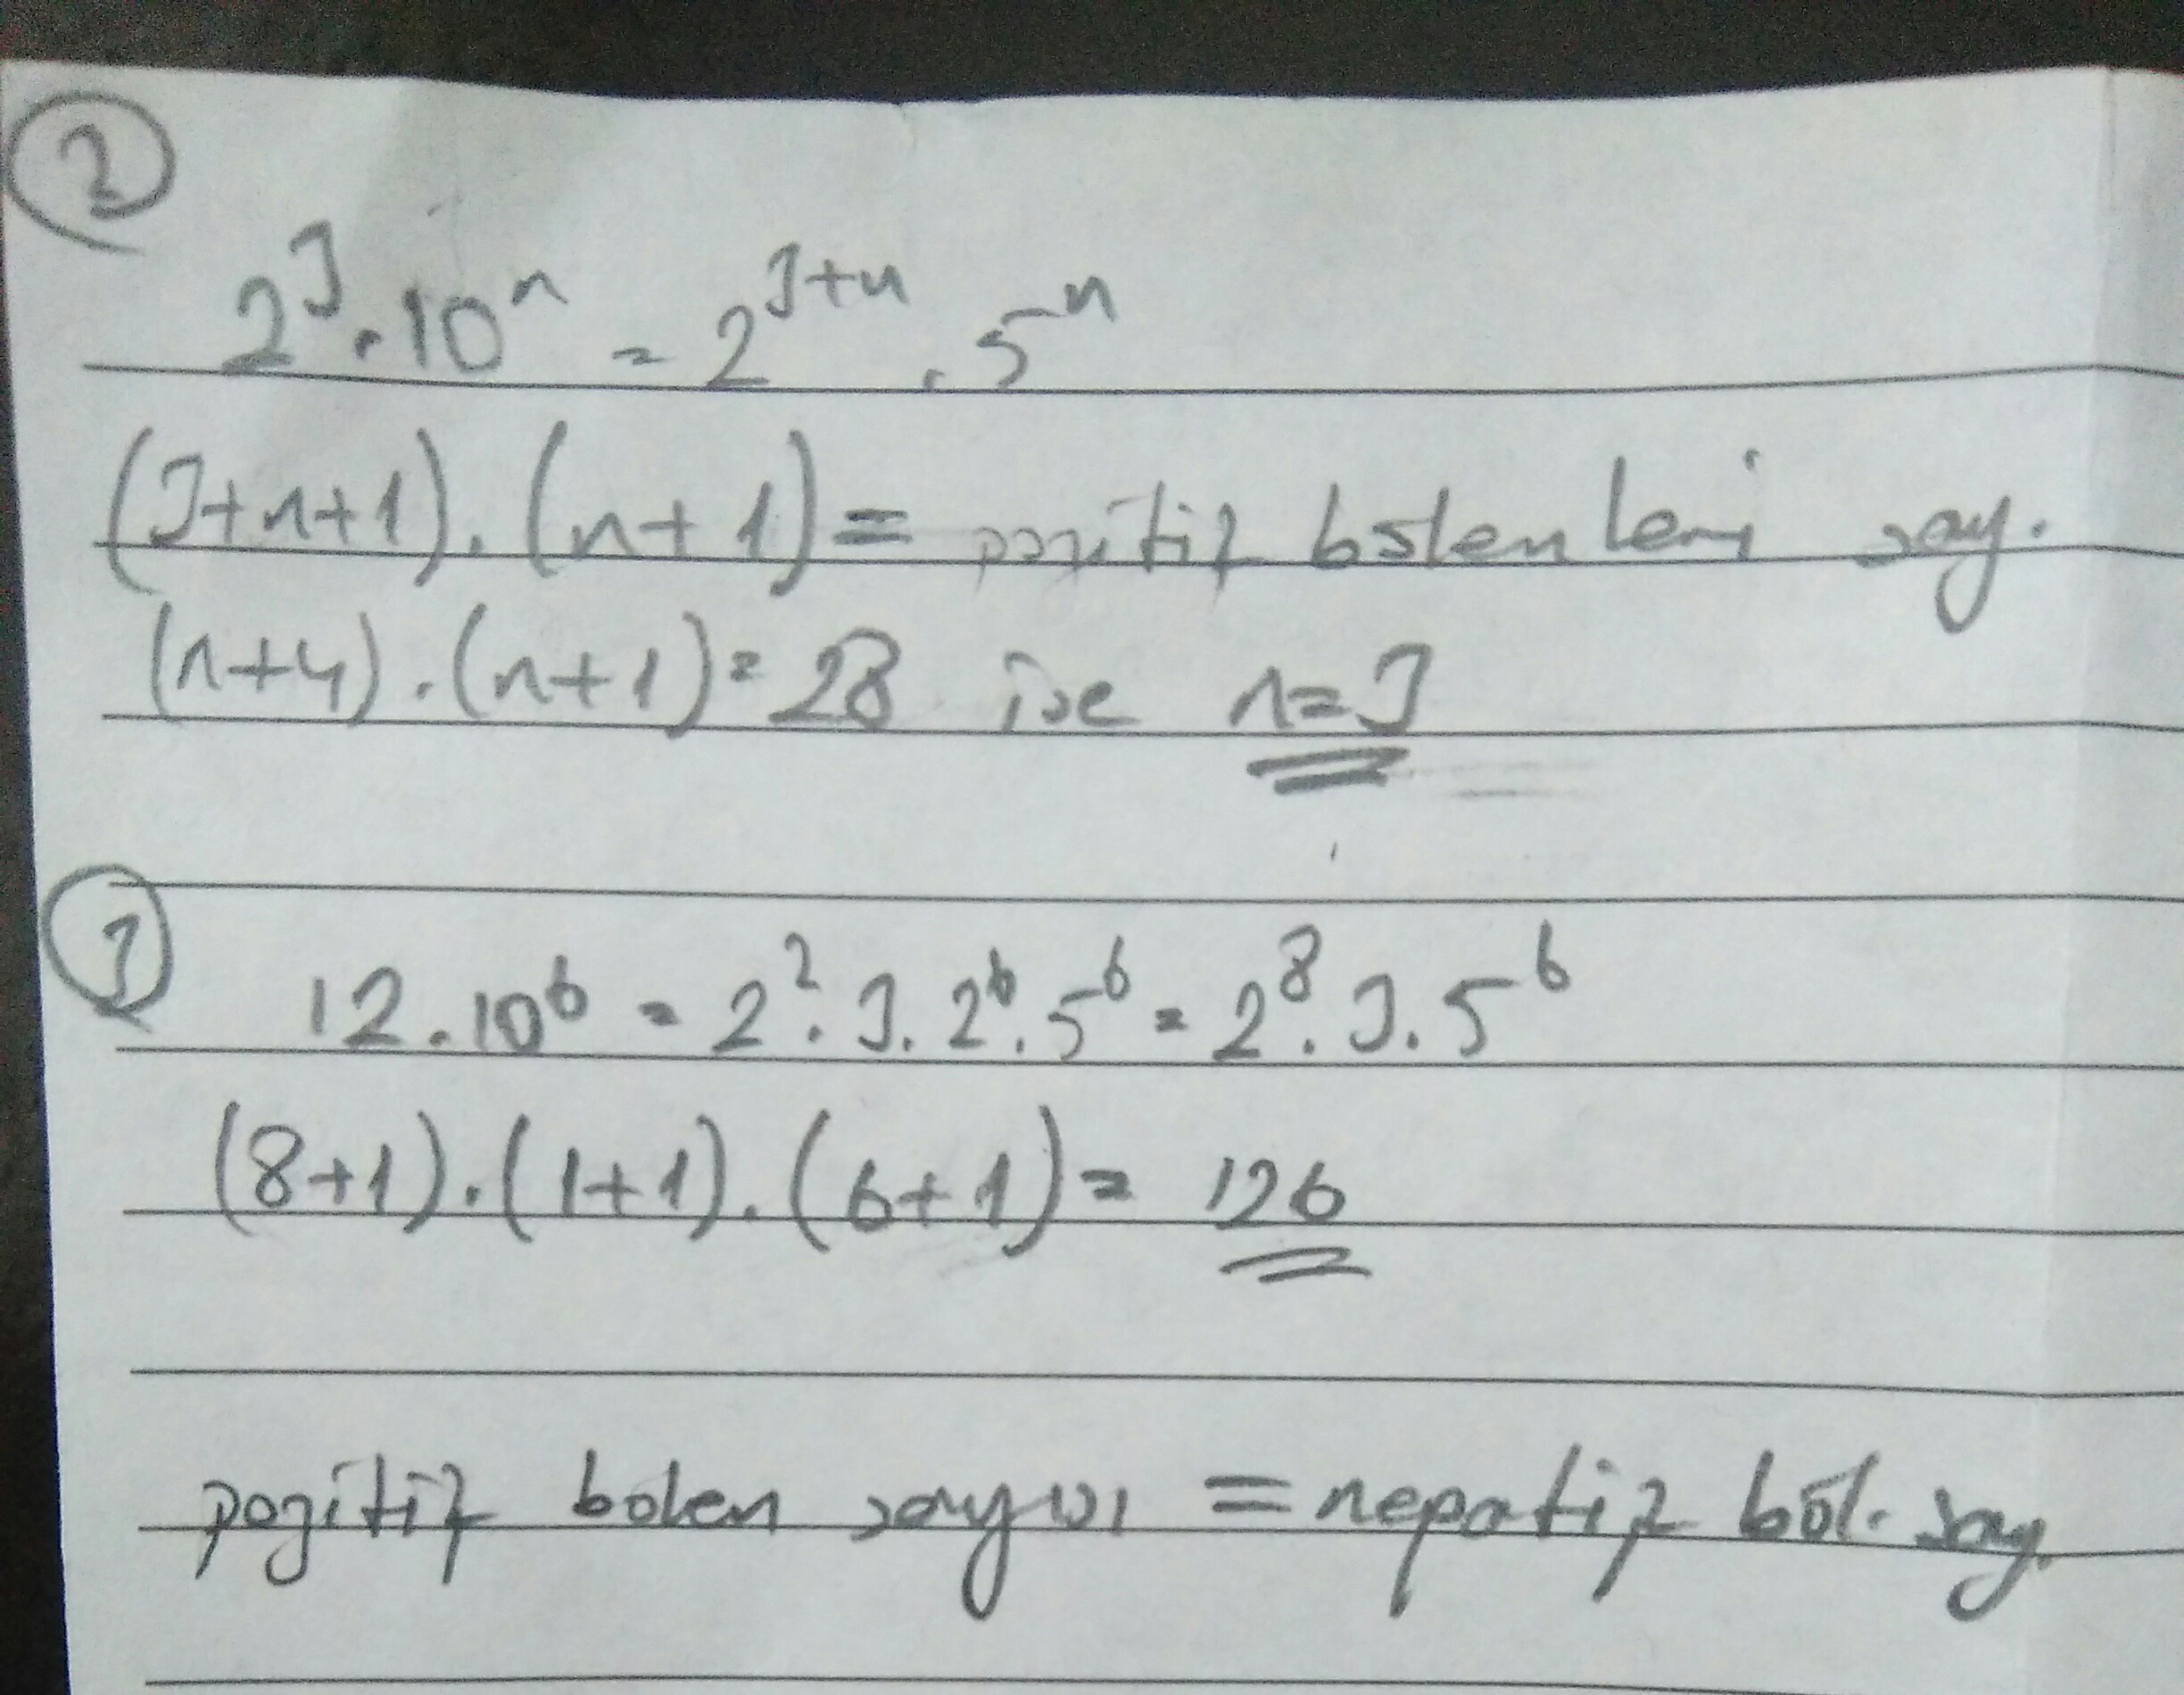 2
2^3 . 10^n = 2^{3+n} . 5^n
(3+n+1) . (n+1) = pozitif bölenleri say.
(n+4) . (n+1) = 28 ise n=3
3
12 . 10^6 = 2^2 . 3 . 2^6 . 5^6 = 2^8 . 3 . 5^6
(8+1) . (1+1) . (6+1) = 126
pozitif bölen sayısı = negatif böl. say.